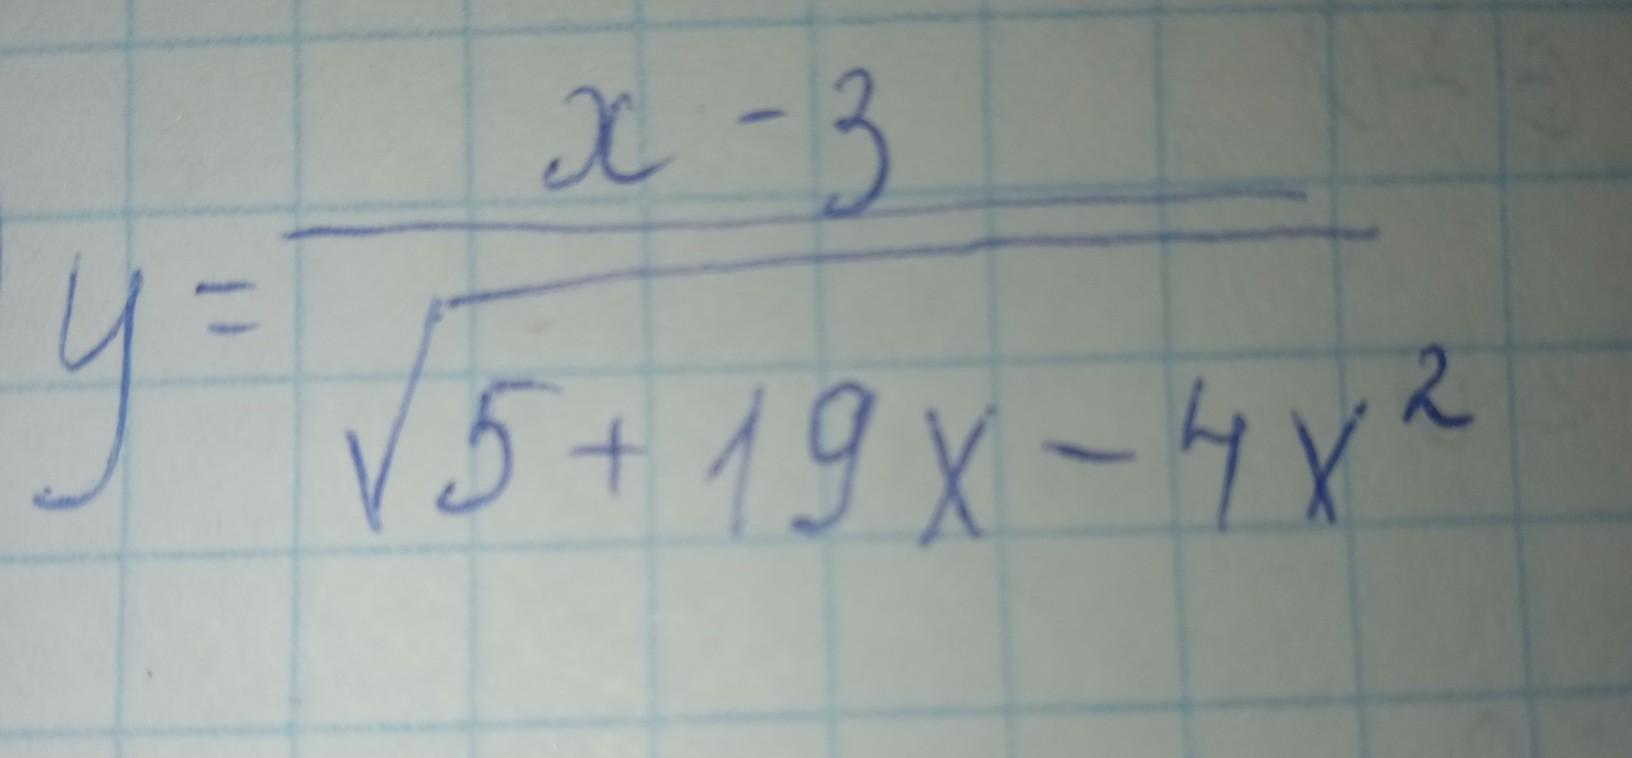 y = \frac{x - 3}{\sqrt{5 + 19x - 4x^2}}